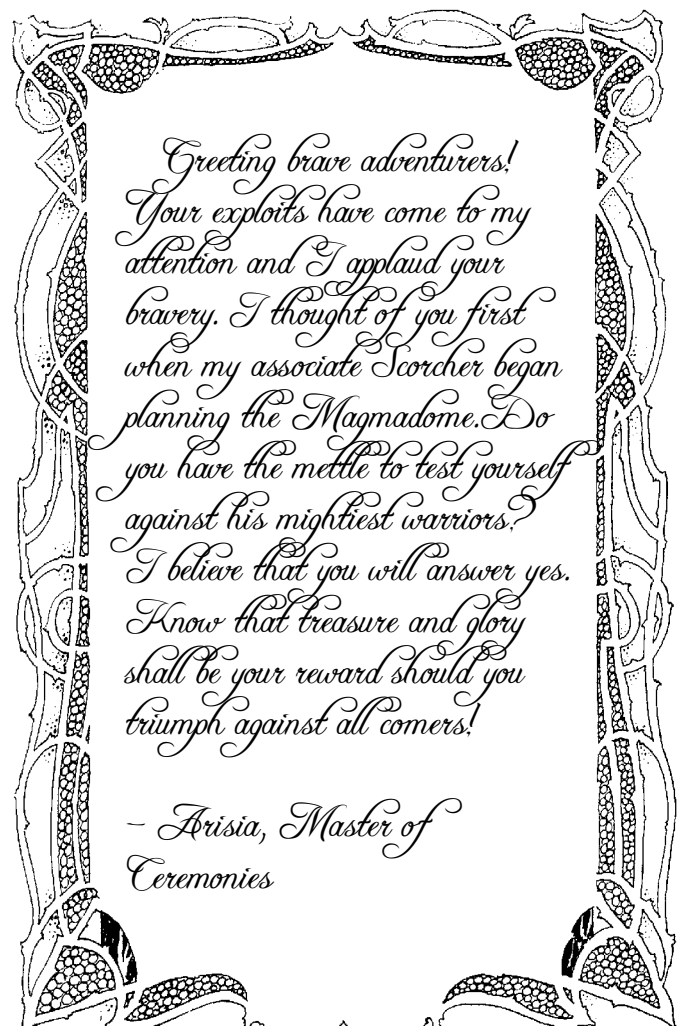 Greeting brave adventurers!
Your exploits have come to my
attention and I applaud your
bravery. I thought of you first
when my associate Scorcher began
planning the Magmadome. Do
you have the mettle to test yourself
against his mightiest warriors?
I believe that you will answer yes.
Know that treasure and glory
shall be your reward should you
triumph against all comers!
– Arisia, Master of
Ceremonies